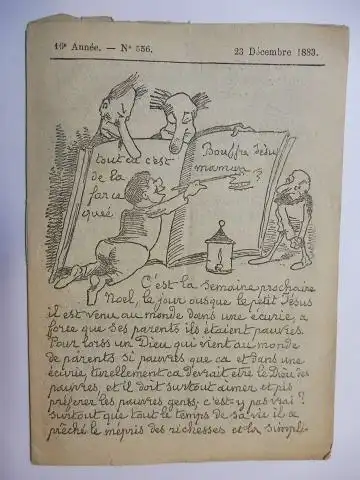 16e Année. — No 556. 23 Décembre 1883.
tout ça c'est
de la
farce
queé
Bouffre Jésu
maman
?
C'est la semaine prochaine
Noel, le jour ousque le petit Jésus
il est venu au monde dans une écurie, à
force que ses parents ils étaient pauvres.
Pour lorss un Dieu qui vient au monde
de parents si pauvres que ça et dans une
écurie, turellement ça devrait être le Dieu des
pauvres, et il doit surtout aimer et pis
préférer les pauvres genss; c'est-y pas vrai?
surtout que tout le temps de sa vie il a
prêché le mépris des richesses et la simpli-